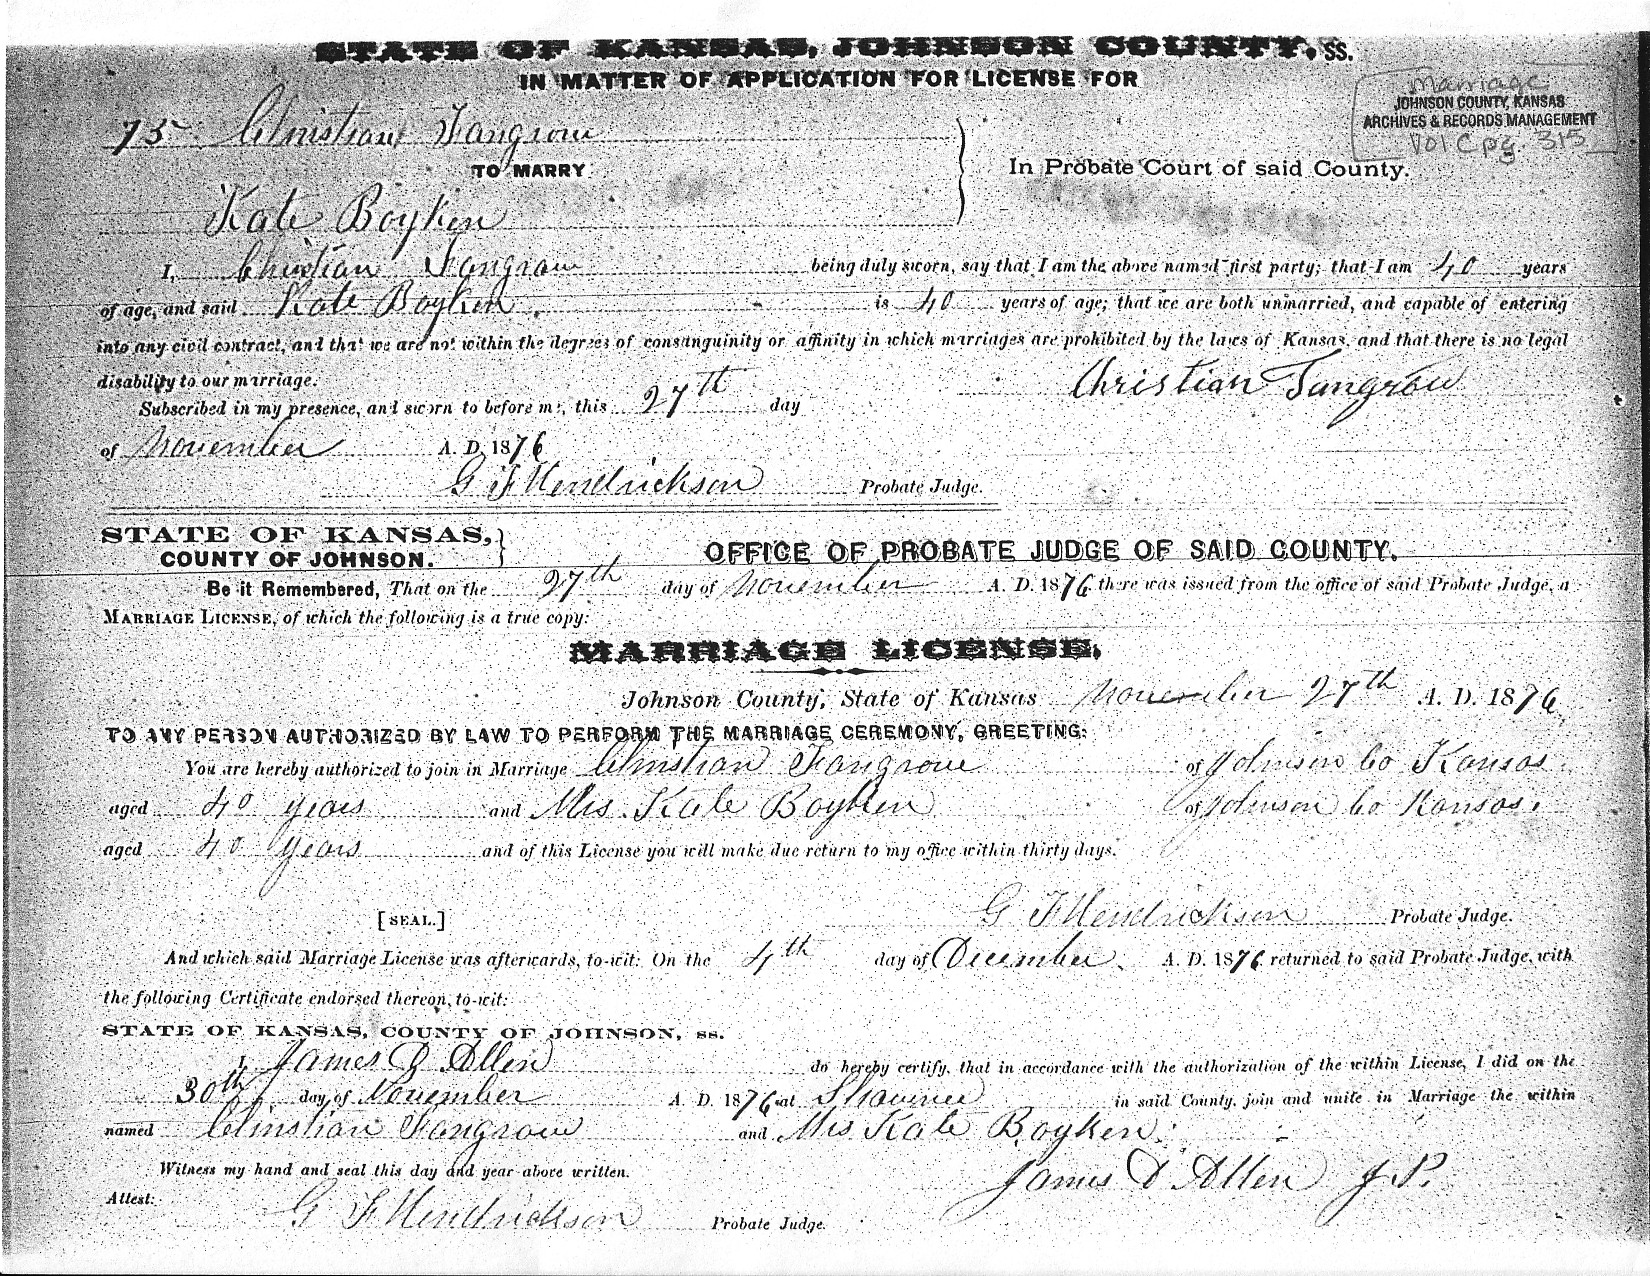 STATE OF KANSAS, JOHNSON COUNTY, SS.
IN MATTER OF APPLICATION FOR LICENSE FOR
Marriage
JOHNSON COUNTY, KANSAS
ARCHIVES & RECORDS MANAGEMENT
Vol C pg. 315
75 Christian Fangrow
TO MARRY
In Probate Court of said County.
Kate Boyken
I, Christian Fangrow being duly sworn, say that I am the above named first party; that I am 40 years
of age, and said Kate Boyken. is 40 years of age; that we are both unmarried, and capable of entering
into any civil contract, and that we are not within the degrees of consanguinity or affinity in which marriages are prohibited by the laws of Kansas, and that there is no legal
disability to our marriage.
Christian Fangrow
Subscribed in my presence, and sworn to before me, this 27th day
of November A. D. 1876
G F Hendrickson Probate Judge.
STATE OF KANSAS,
COUNTY OF JOHNSON.
OFFICE OF PROBATE JUDGE OF SAID COUNTY.
Be it Remembered, That on the 27th day of November A. D. 1876 there was issued from the office of said Probate Judge, a
MARRIAGE LICENSE, of which the following is a true copy:
MARRIAGE LICENSE.
Johnson County, State of Kansas November 27th A. D. 1876
TO ANY PERSON AUTHORIZED BY LAW TO PERFORM THE MARRIAGE CEREMONY, GREETING:
You are hereby authorized to join in Marriage Christian Fangrow of Johnson Co Kansas.
aged 40 years and Mrs. Kate Boyken of Johnson Co Kansas.
aged 40 years and of this License you will make due return to my office within thirty days.
[SEAL.]
G F Hendrickson Probate Judge.
And which said Marriage License was afterwards, to-wit: On the 4th day of December. A. D. 1876 returned to said Probate Judge, with
the following Certificate endorsed thereon, to-wit:
STATE OF KANSAS, COUNTY OF JOHNSON, ss.
I, James D Allen do hereby certify, that in accordance with the authorization of the within License, I did on the
30th day of November A. D. 1876 at Shawnee in said County, join and unite in Marriage the within
named Christian Fangrow and Mrs Kate Boyken.
Witness my hand and seal this day and year above written.
James D Allen J.P.
Attest:
G F Hendrickson Probate Judge.